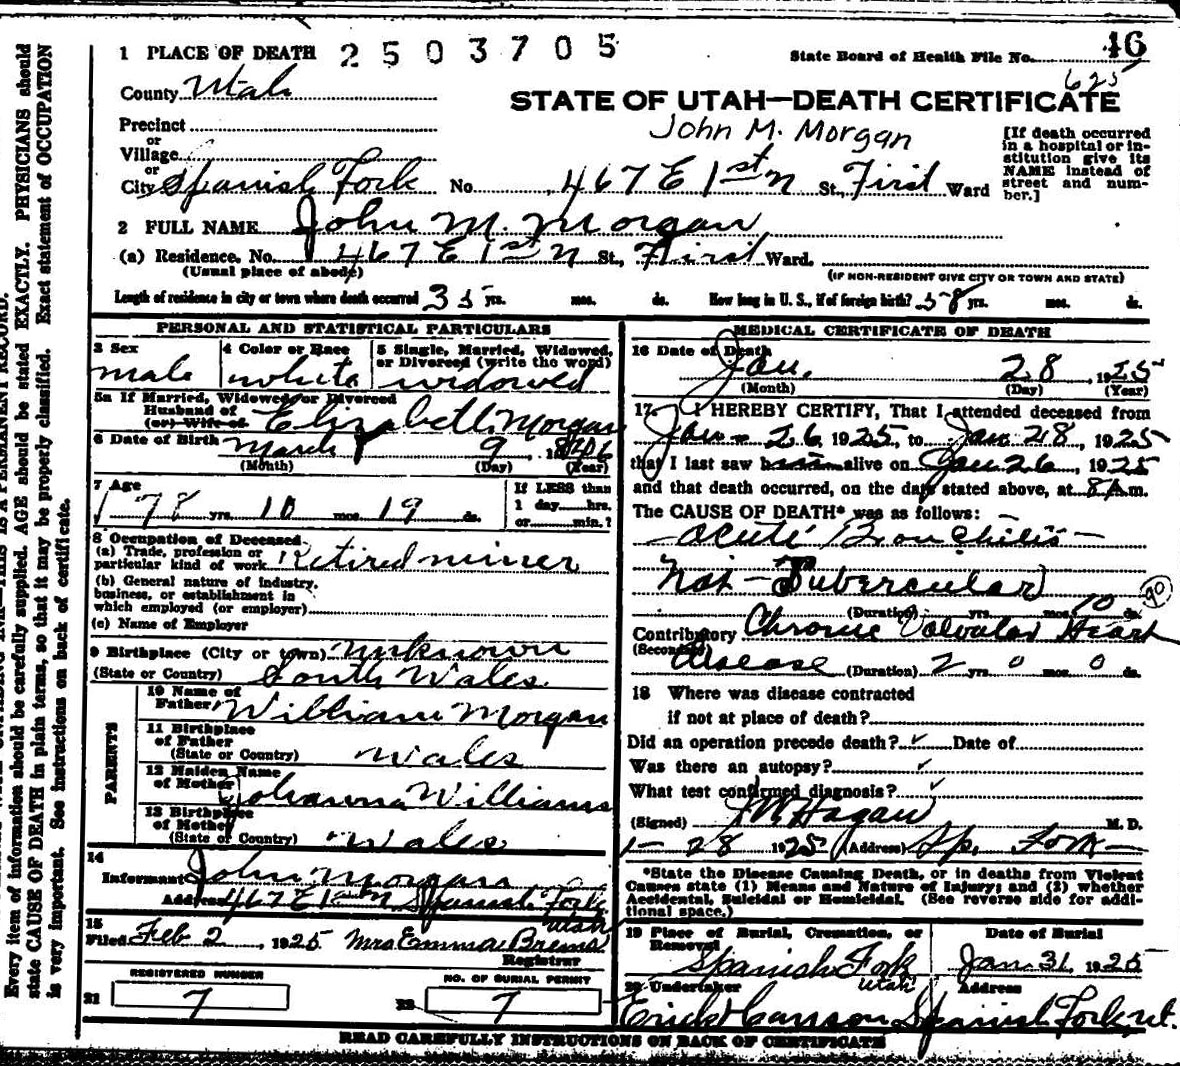 1 PLACE OF DEATH 2503705 State Board of Health File No. 46
625
County Utah
STATE OF UTAH—DEATH CERTIFICATE
Precinct
or
Village
or
John M. Morgan
[If death occurred in a hospital or institution give its NAME instead of street and number.]
City Spanish Fork No. 467 E 1st N St., First Ward
2 FULL NAME John M. Morgan
(a) Residence, No. 467 E 1st N St., First Ward.
(Usual place of abode) (IF NON-RESIDENT GIVE CITY OR TOWN AND STATE)
Length of residence in city or town where death occurred 35 yrs. mos. ds. How long in U. S., if of foreign birth? 58 yrs. mos. ds.
PERSONAL AND STATISTICAL PARTICULARS
3 Sex male
4 Color or Race white
5 Single, Married, Widowed, or Divorced (write the word) widowed
5a If Married, Widowed or Divorced
Husband of
(or) Wife of Elizabeth Morgan
6 Date of Birth March 9, 1846
(Month) (Day) (Year)
7 Age 78 yrs. 10 mos. 19 ds.
If LESS than
1 day hrs.
or min.?
8 Occupation of Deceased
(a) Trade, profession or
particular kind of work Retired miner
(b) General nature of industry,
business, or establishment in
which employed (or employer)
(c) Name of Employer
9 Birthplace (City or town) unknown
(State or Country) South Wales
PARENTS
10 Name of
Father William Morgan
11 Birthplace
of Father
(State or Country) Wales
12 Maiden Name
of Mother Johanna Williams
13 Birthplace
of Mother
(State or Country) Wales
14
Informant John Morgan
Address 467 E 1st N. Spanish Fork
Utah
15
Filed Feb 2, 1925 Mrs Emma Brems
Registrar
REGISTERED NUMBER NO. OF BURIAL PERMIT
21 7 22 7
MEDICAL CERTIFICATE OF DEATH
16 Date of Death
Jan. 28, 1925
(Month) (Day) (Year)
17. I HEREBY CERTIFY, That I attended deceased from
Jan - 26, 1925, to Jan 28, 1925
that I last saw him alive on Jan 26, 1925
and that death occurred, on the date stated above, at 8 A.m.
The CAUSE OF DEATH* was as follows:
Acute Bronchitis
Not - Tubercular
(Duration) yrs. mos. 10 ds.
90
Contributory Chronic Valvular Heart
(Secondary) disease (Duration) 2 yrs. 0 mos. 0 ds.
18 Where was disease contracted
if not at place of death?
Did an operation precede death? ✓ Date of
Was there an autopsy? ✓
What test confirmed diagnosis? ✓
(Signed) J W Hagan M. D.
1 - 28 1925 (Address) Sp. Fork
*State the Disease Causing Death, or in deaths from Violent
Causes state (1) Means and Nature of Injury; and (2) whether
Accidental, Suicidal or Homicidal. (See reverse side for addi-
tional space.)
19 Place of Burial, Cremation, or Date of Burial
Removal
Spanish Fork Jan 31, 1925
Utah
20 Undertaker Address
Erick Hanson Spanish Fork ut.
READ CAREFULLY INSTRUCTIONS ON BACK OF CERTIFICATE
Every item of information should be carefully supplied. AGE should be stated EXACTLY. PHYSICIANS should
state CAUSE OF DEATH in plain terms, so that it may be properly classified. Exact statement of OCCUPATION
is very important. See instructions on back of certificate.